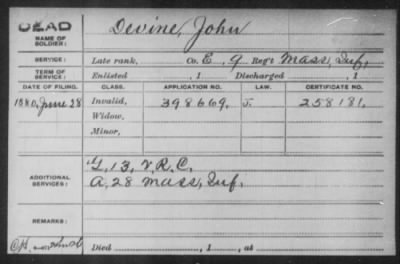 DEAD
NAME OF SOLDIER: Devine, John
SERVICE: Late rank, Co. E, 9 Reg't Mass. Inf.
TERM OF SERVICE: Enlisted , 1 Discharged , 1
DATE OF FILING. CLASS. APPLICATION NO. LAW. CERTIFICATE NO.
1880, June 28 Invalid, 398669. J. 258181.
Widow,
Minor,
ADDITIONAL SERVICES: G, 13, V.R.C.
A, 28 Mass, Inf.
REMARKS:
Died , 1 , at